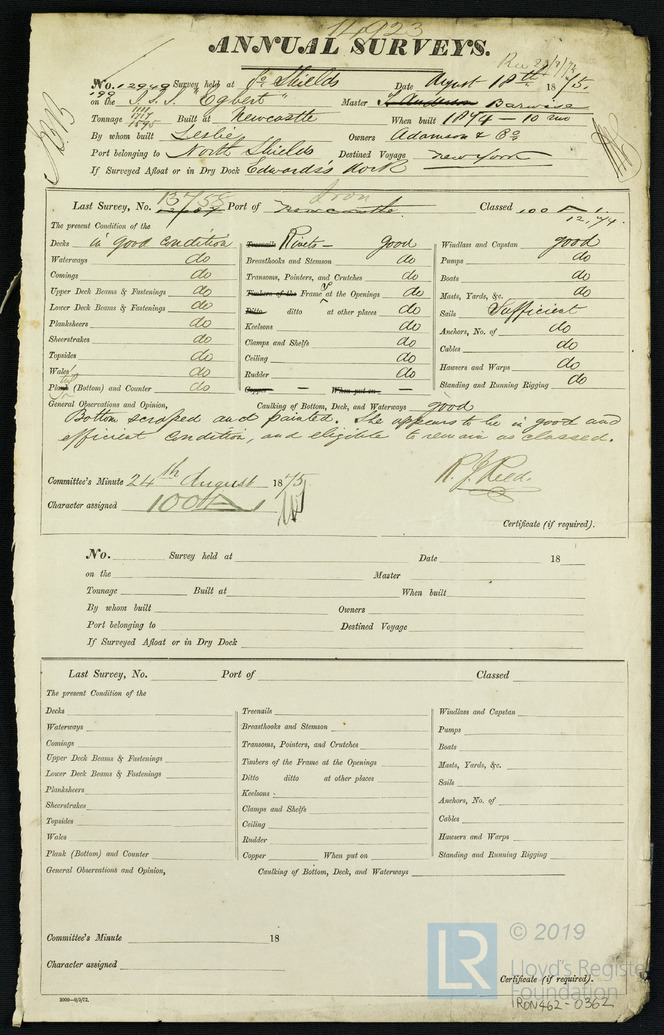 14923
ANNUAL SURVEYS.
No. 12949 Survey held at So Shields Date August 18th 1875.
on the I.S.S. "Egbert" Master Barwise
Tonnage 1111 1717 1595 Built at Newcastle When built 1874 - 10 mo
By whom built Leslie Owners Adamson & Co
Port belonging to North Shields Destined Voyage New York
If Surveyed Afloat or in Dry Dock Edwards's dock
Last Survey, No. 13758 Port of Newcastle. Iron Classed 100 A 1. 12,74.
The present Condition of the
Decks in good condition Treenails Rivets - good Windlass and Capstan good
Waterways do Breasthooks and Stemson do Pumps do
Comings do Transoms, Pointers, and Crutches do Boats do
Upper Deck Beams & Fastenings do Timbers of the Frame at the Openings do Masts, Yards, &c. do
Lower Deck Beams & Fastenings do Ditto ditto at other places do Sails Sufficient
Planksheers do Keelsons do Anchors, No. of do
Sheerstrakes do Clamps and Shelfs do Cables do
Topsides do Ceiling do Hawsers and Warps do
Wales do Rudder do Standing and Running Rigging do
Plank (Bottom) and Counter do Copper - When put on -
General Observations and Opinion, Caulking of Bottom, Deck, and Waterways good
Bottom scraped and painted. She appears to be in good and
efficient condition, and eligible to remain as classed.
R. J. Reed.
Committee's Minute 24th August 1875
Character assigned 100A
Certificate (if required).
No. Survey held at Date 18
on the Master
Tonnage Built at When built
By whom built Owners
Port belonging to Destined Voyage
If Surveyed Afloat or in Dry Dock
Last Survey, No. Port of Classed
The present Condition of the
Decks Treenails Windlass and Capstan
Waterways Breasthooks and Stemson Pumps
Comings Transoms, Pointers, and Crutches Boats
Upper Deck Beams & Fastenings Timbers of the Frame at the Openings Masts, Yards, &c.
Lower Deck Beams & Fastenings Ditto ditto at other places Sails
Planksheers Keelsons Anchors, No. of
Sheerstrakes Clamps and Shelfs Cables
Topsides Ceiling Hawsers and Warps
Wales Rudder Standing and Running Rigging
Plank (Bottom) and Counter Copper When put on
General Observations and Opinion, Caulking of Bottom, Deck, and Waterways
Committee's Minute 18
Character assigned
Certificate (if required).
LR © 2019
Lloyd's Register
Foundation
RON462-0362